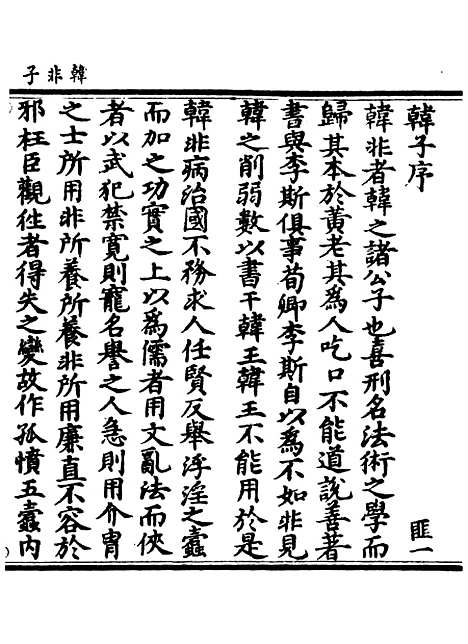 韓非子
韓子序
匪一
韓非者韓之諸公子也喜刑名法術之學而
歸其本於黃老其為人吃口不能道說善著
書與李斯俱事荀卿李斯自以為不如非見
韓之削弱數以書干韓王韓王不能用於是
韓非病治國不務求人任賢反舉浮淫之蠹
而加之功實之上以為儒者用文亂法而俠
者以武犯禁寬則寵名譽之人急則用介胄
之士所用非所養所養非所用廉直不容於
邪枉臣觀徃者得失之變故作孤憤五蠹內